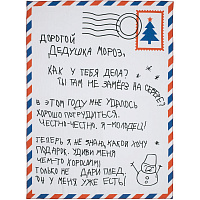 Дорогой
Дедушка Мороз,
Как у тебя дела?
Ты там не замёрз на севере?
В этом году мне удалось
хорошо потрудиться.
Честно-честно, я - молодец!
Теперь я не знаю, какой хочу
подарок. Удиви меня
чем-то хорошим!
Только не дари плед,
он у меня уже есть!